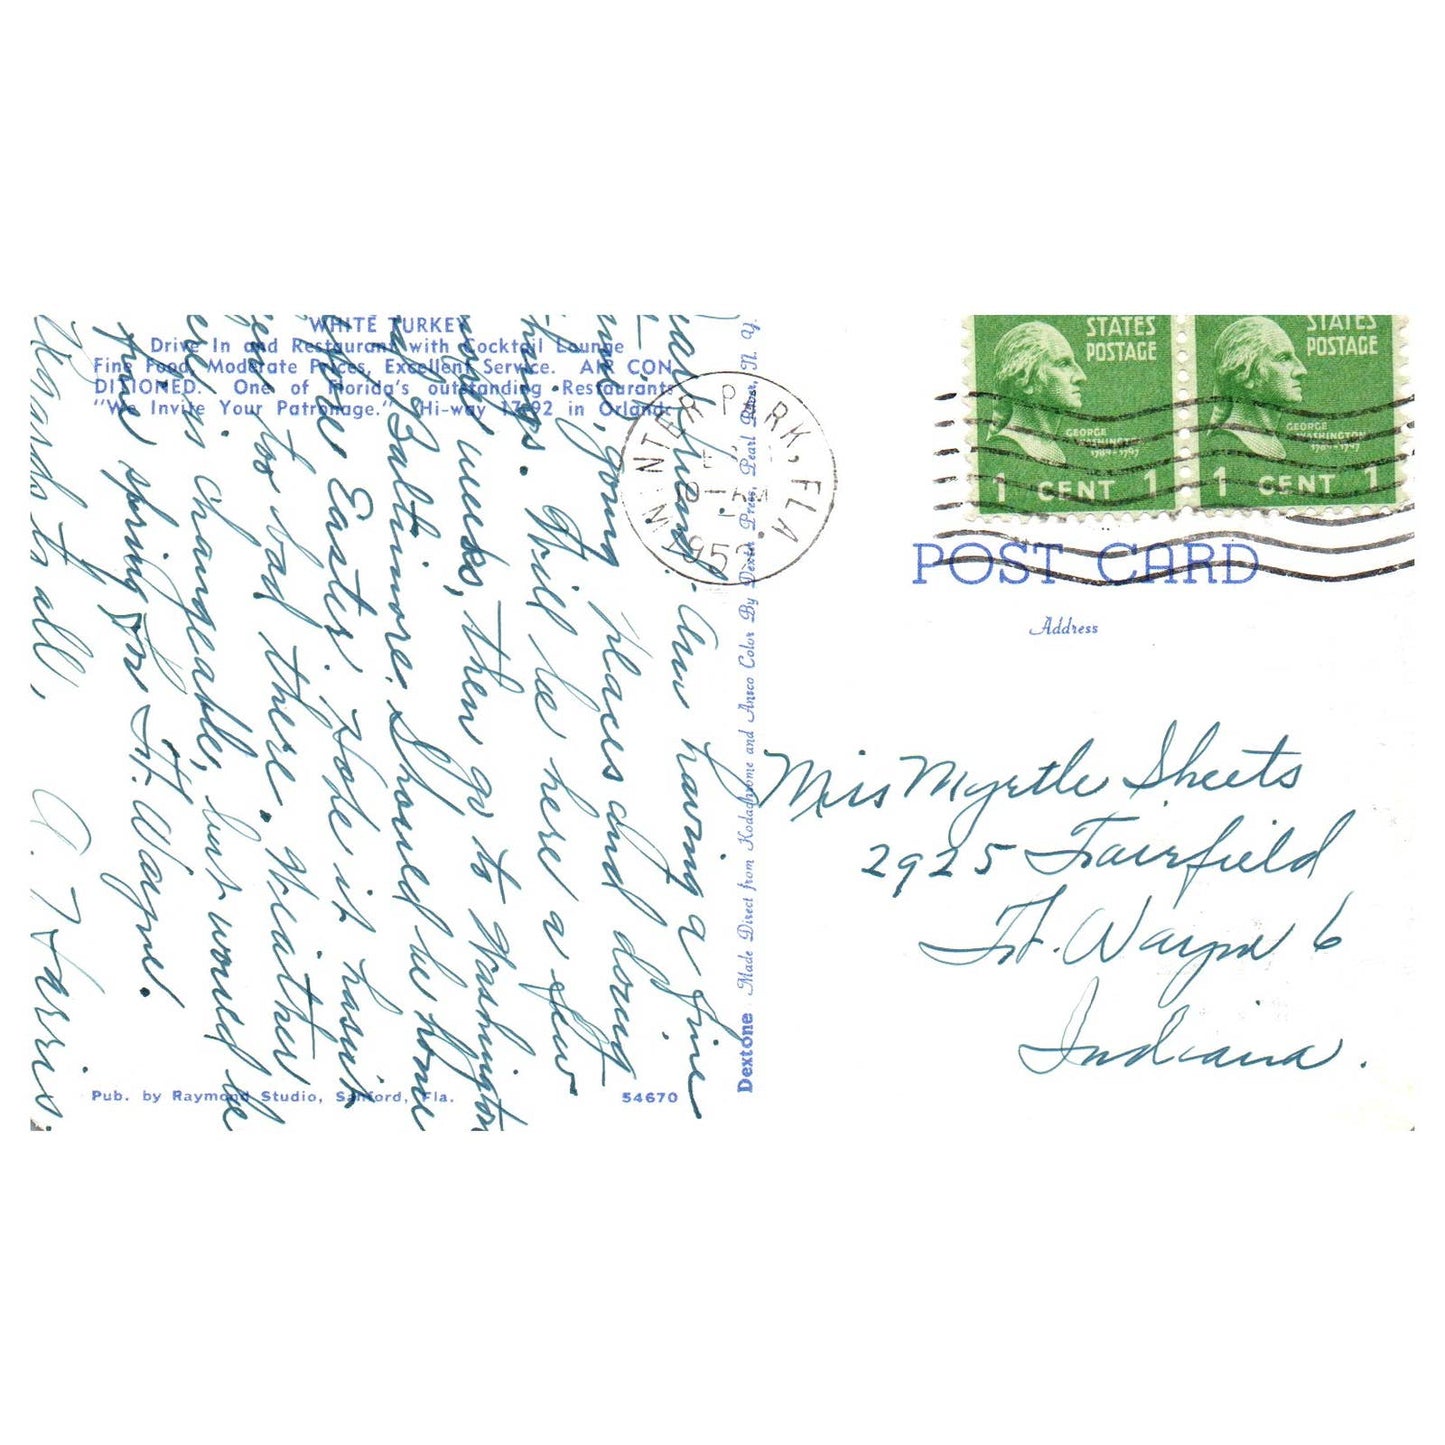 WHITE TURKEY
Drive In and Restaurant with Cocktail Lounge
Fine Food, Moderate Prices, Excellent Service. AIR CON
DITIONED. One of Florida's outstanding Restaurants
"We Invite Your Patronage." Hi-way 17-92 in Orlando
Having a fine
time, going places and doing
things. Will be here a few
more weeks, then go to Washington
Baltimore. Should be home
before Easter. Hope it hasn't
been too bad there. Weather
here is changeable, but would be
fine spring for Ft. Wayne.
Regards to all,
A. Harris.
Pub. by Raymond Studio, Sanford, Fla.
54670
Dextone Made Direct from Kodachrome and Ansco Color By Dexter Press, Pearl River, N. Y.
WINTER PARK, FLA.
1 AM
195
STATES
POSTAGE
GEORGE
WASHINGTON
1789-1797
1 CENT 1
STATES
POSTAGE
GEORGE
WASHINGTON
1789-1797
1 CENT 1
POST CARD
Address
Miss Myrtle Sheets
2925 Fairfield
Ft. Wayne 6
Indiana.